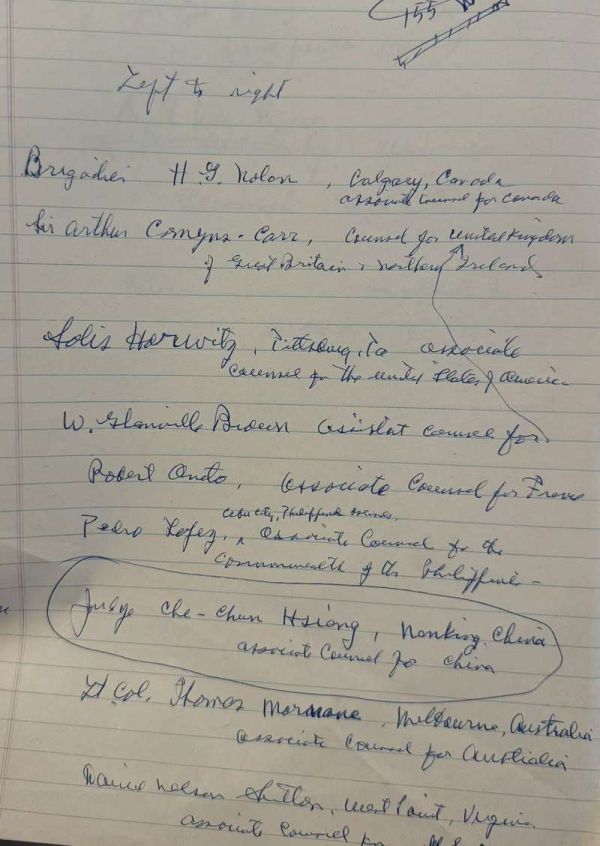 155 W
Left to right
Brigadier H.G. Nolan, Calgary, Canada
associate counsel for Canada
Sir Arthur Comyns-Carr, Counsel for United Kingdom
of Great Britain & northern Ireland
Solis Horwitz, Pittsburg, Pa associate
counsel for the United States of America
W. Glanville Brown assistat counsel for
Robert Oneto, associate Counsel for France
Cebu city, Philippine
Pedro Lopez, associate Counsel for the
commonwealth of the Philippine
Judge Che-Chun Hsiang, Nanking, China
associate Counsel for China
Lt Col. Thomas Mornane, Melbourne, Australia
associate Counsel for Australia
David Nelson Sutton, West Point, Virginia
associate counsel for